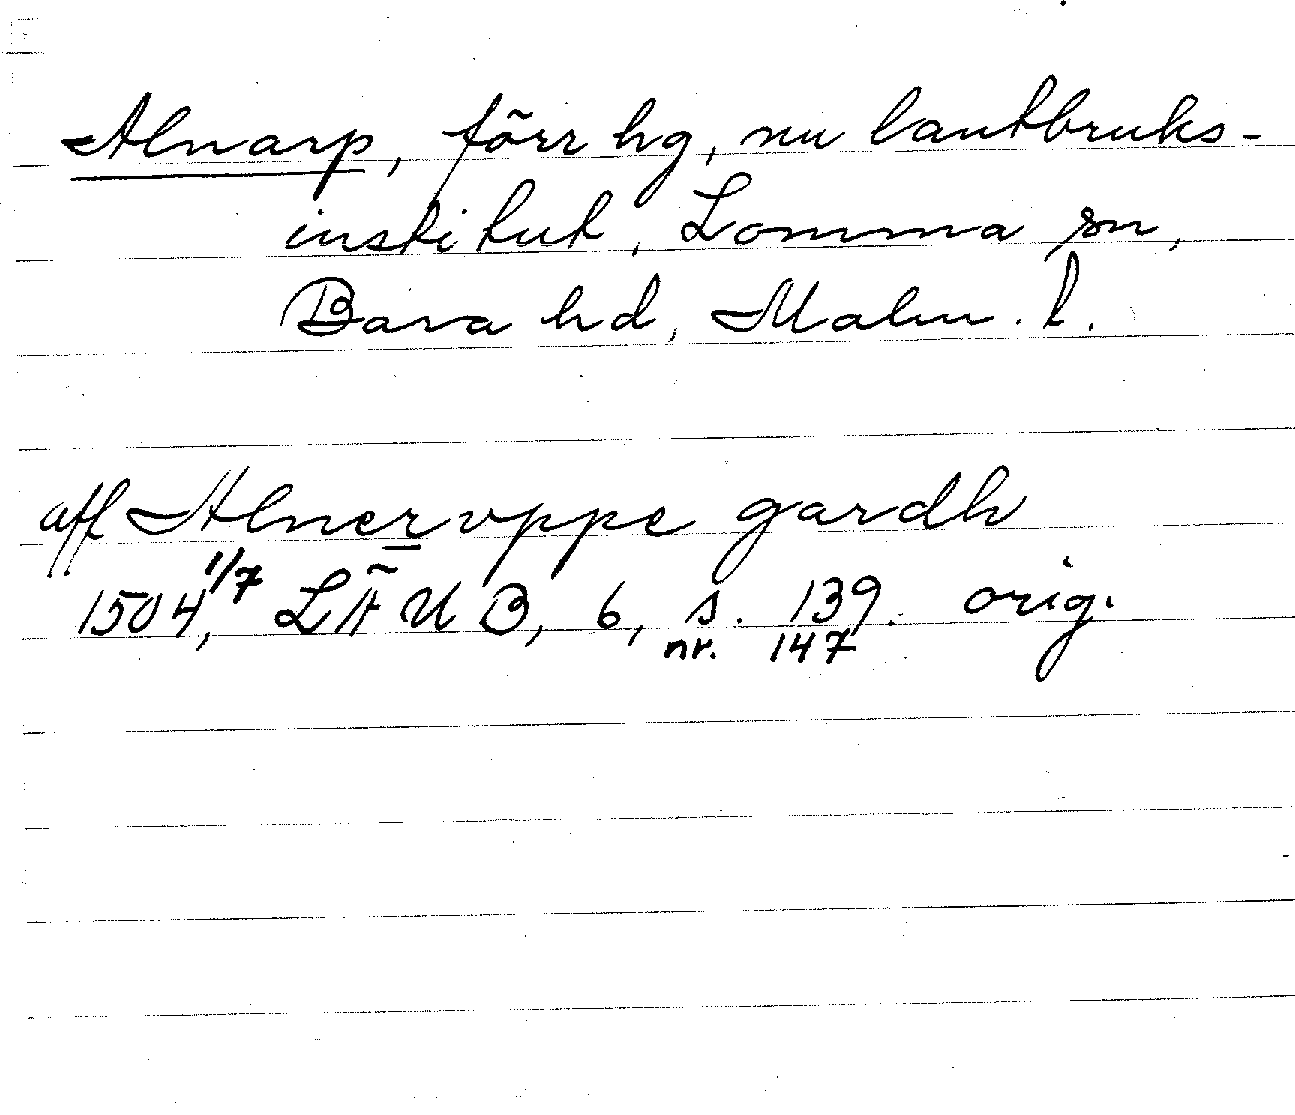 Alnarp, förr hg, nu lantbruks-
institut, Lomma sn,
Bara hd, Malm. l.
aff Alnervppe gardh
1504 1/7, LÄUB, 6, s. 139. orig.
nr. 147